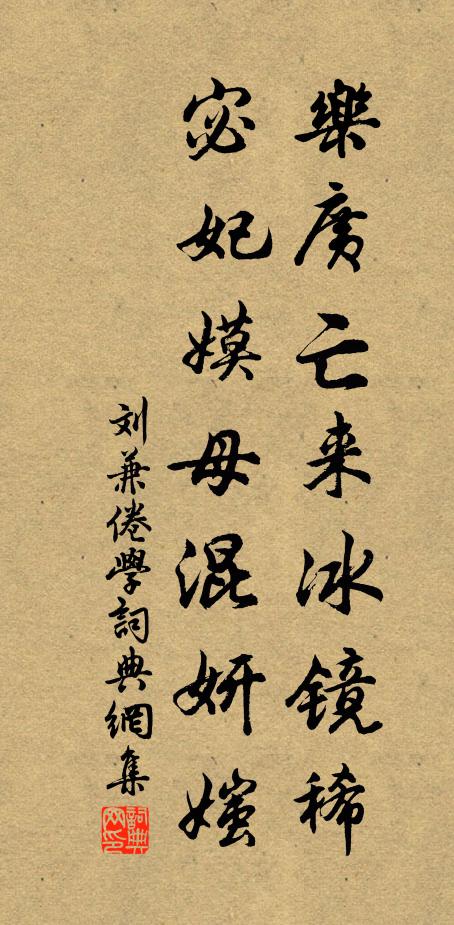 樂廣亡来冰镜稀
宓妃嫫母混妍媸
刘兼倦學詞典網集
詞典网印